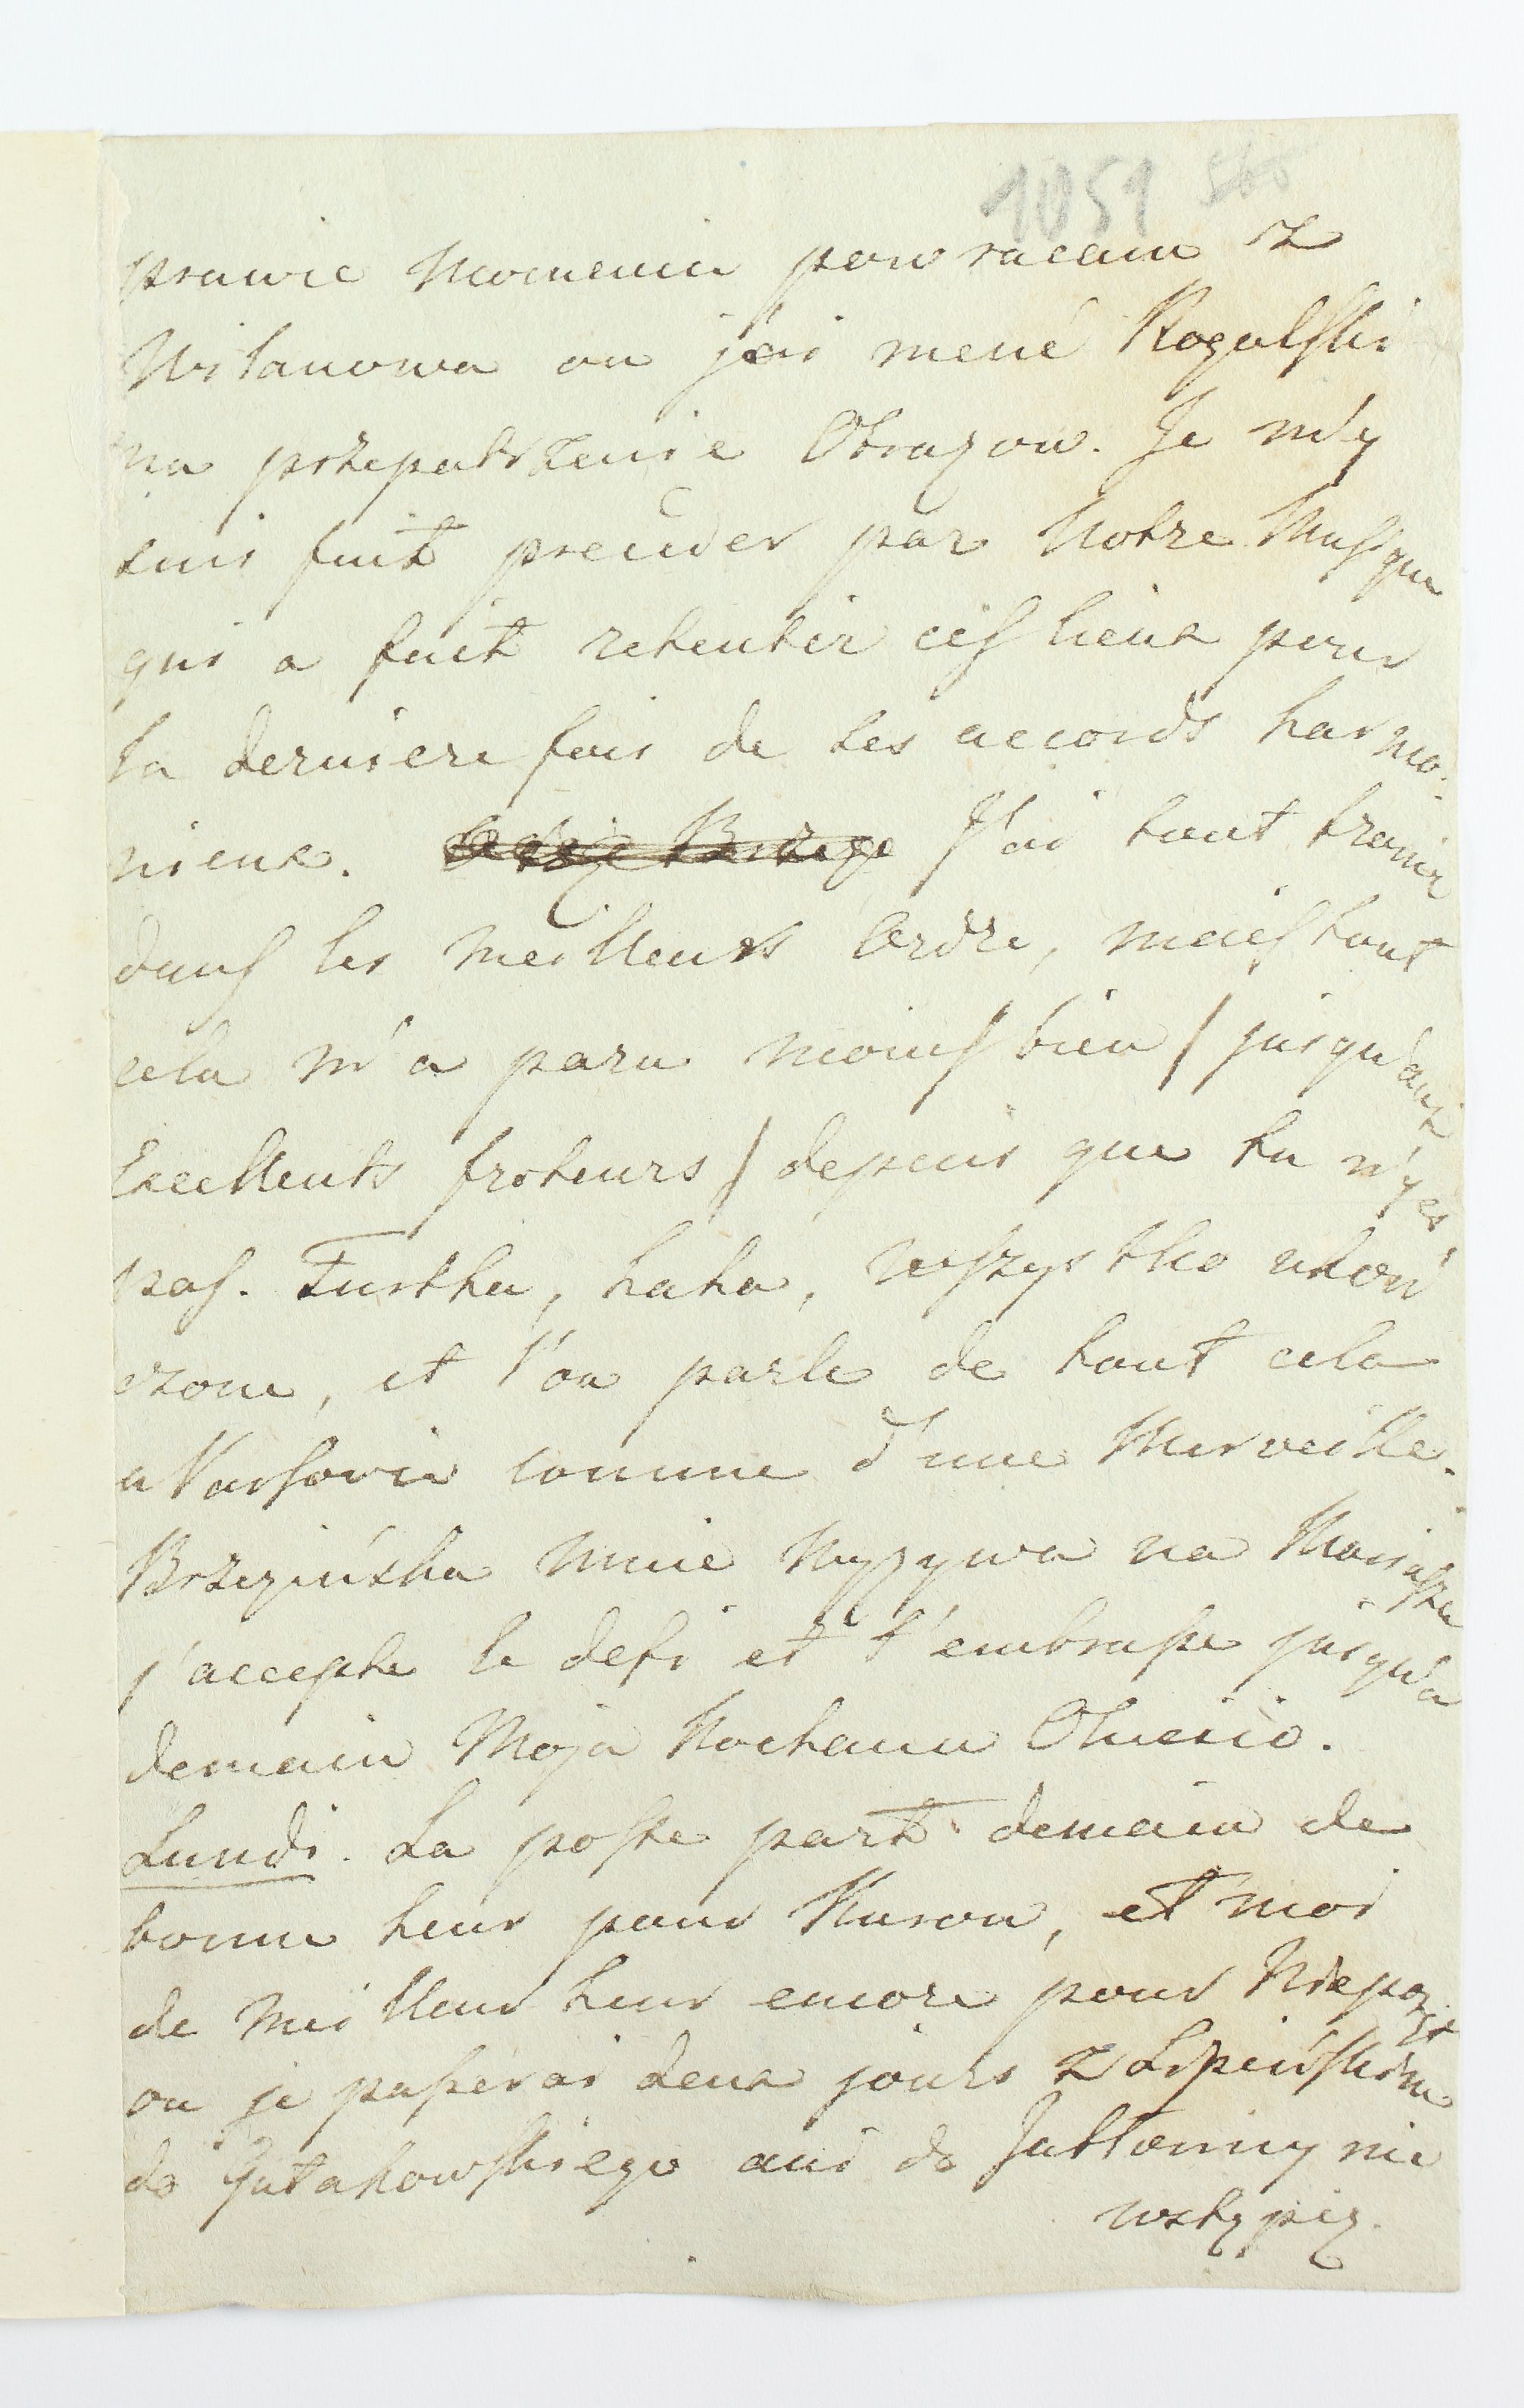 1051
prawie momencie powracam z
Wilanowa ou j'ai mené Rogalski
na przepatrzenie Obrazow. Je m'y
suis fait preceder par Notre Musique
qui a fait retentir ces lieux pour
la derniere fois de ses accords harmo-
nieux. J'ai tout trouvé
dans les meilleurs Ordre, mais tout
cela m'a paru moins bien / jusqu'aux
Excellents froteurs / depuis que tu n'y es
pas. Furtka, haha, wszystko ukoń
czone, et l'on parle de tout cela
a Varsovie comme d'une Merveille.
Brzezińska mnie wyzywa na
j'accepte le defi et t'embrasse jusqu'a
demain Moja Kochana Oluesio.
Lundi. La poste part demain de
bonne heur pour Kurow, et moi
de meilleur heur encore pour Nieporęt
ou je passerai deux jours z Lipińskim
do Gutakowskiego ani do Jabłonny nie
wstąpię.